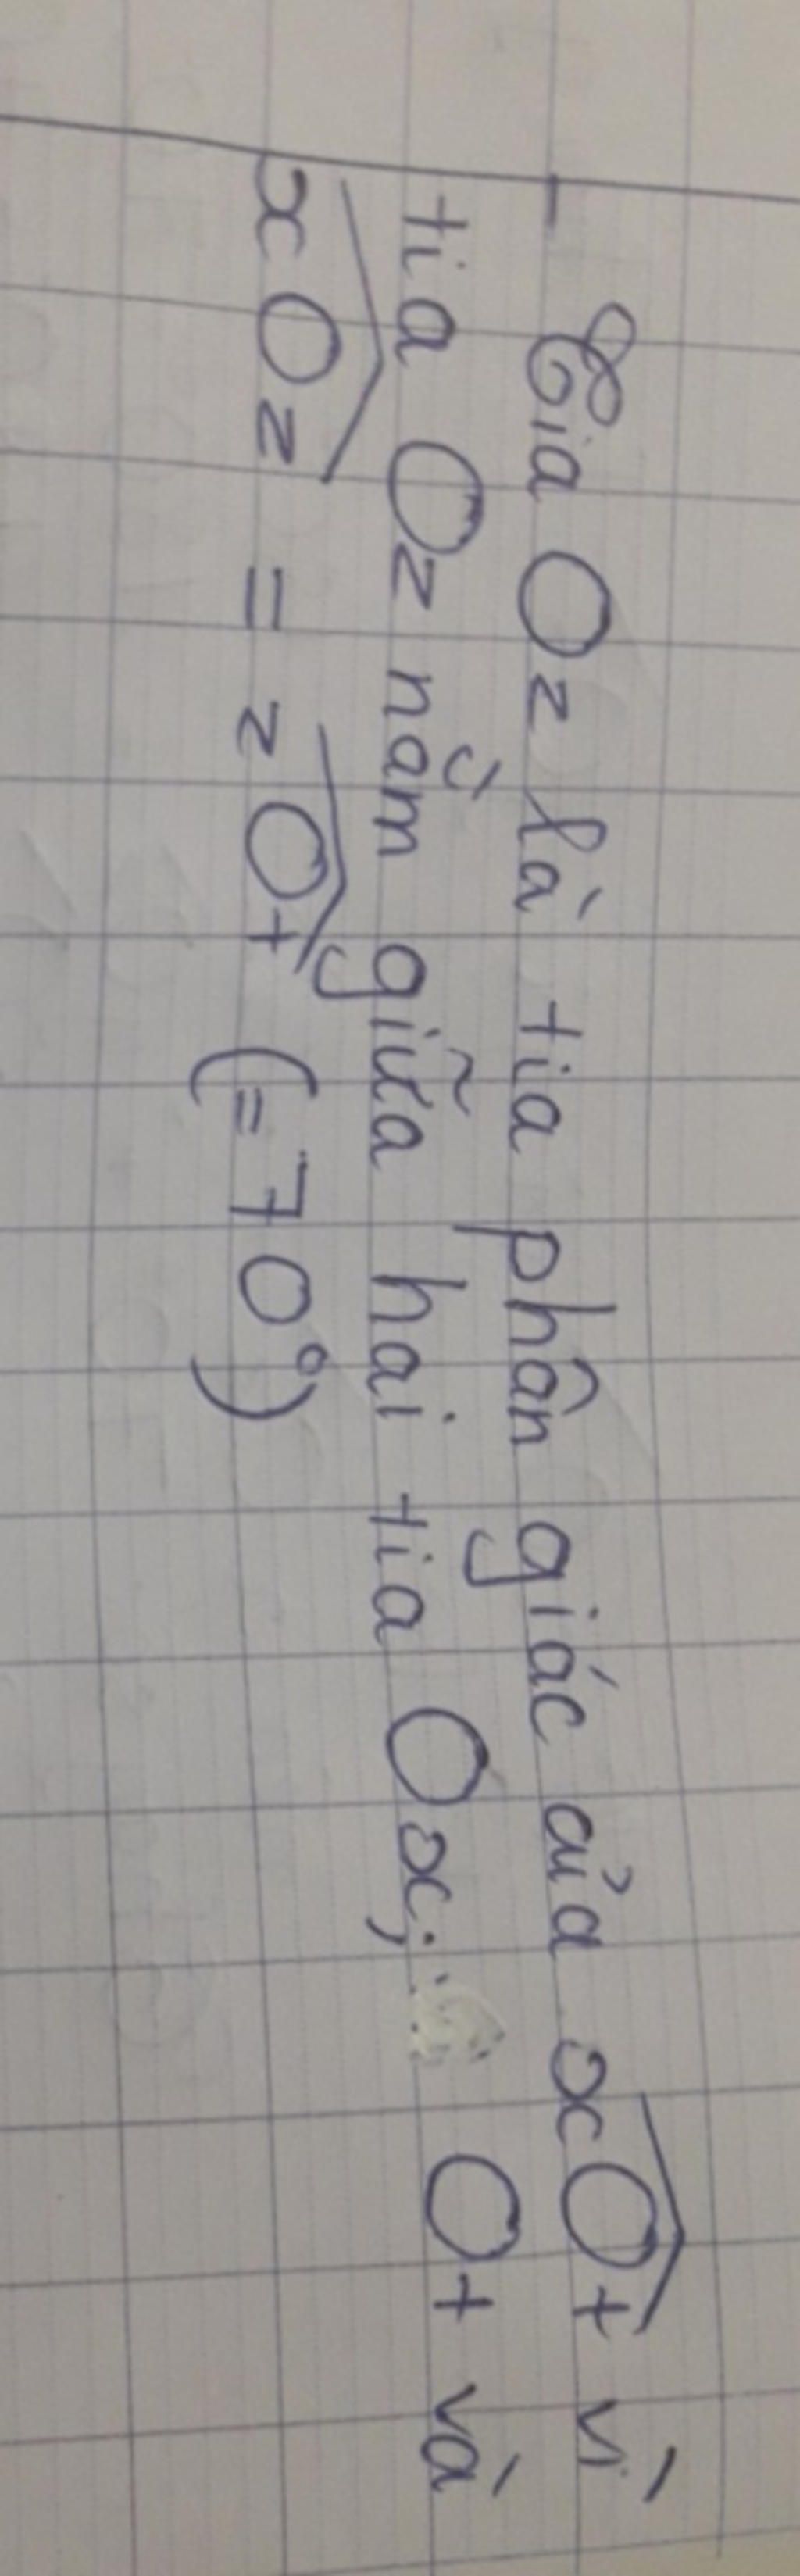 - Tia Oz là tia phân giác của xOt vì
tia Oz nằm giữa hai tia Ox; Ot và
xOz = zOt (=70°)